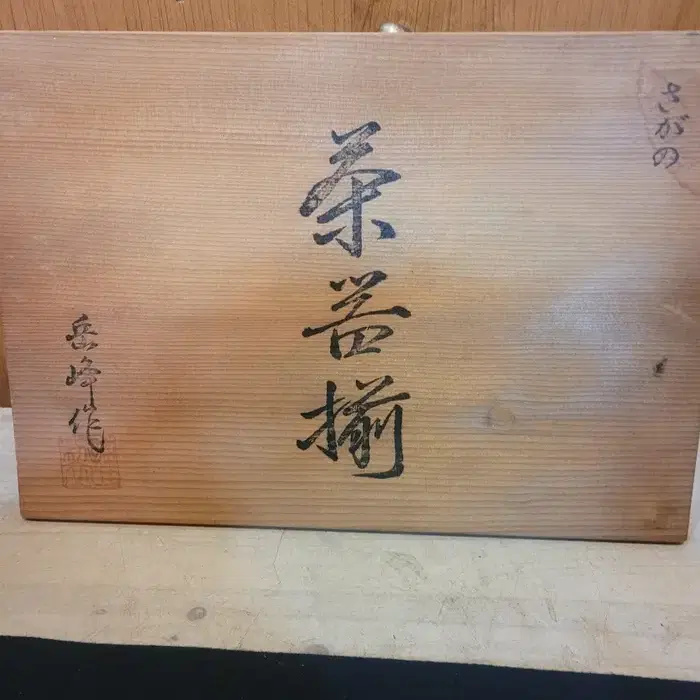 さがの
茶器揃
岳峰作